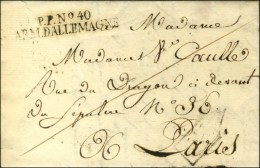 P.P. Nº 40
ARM. D'ALLEMAGNE
Madame
Madame Ve Caulle
Rue du Dragon ci devant
du Sepulcre Nº 36
Paris